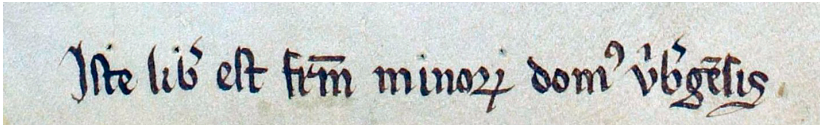 Iste lib̉ est frm̄ minoꝝ domꝰ v̉b̉gēsis